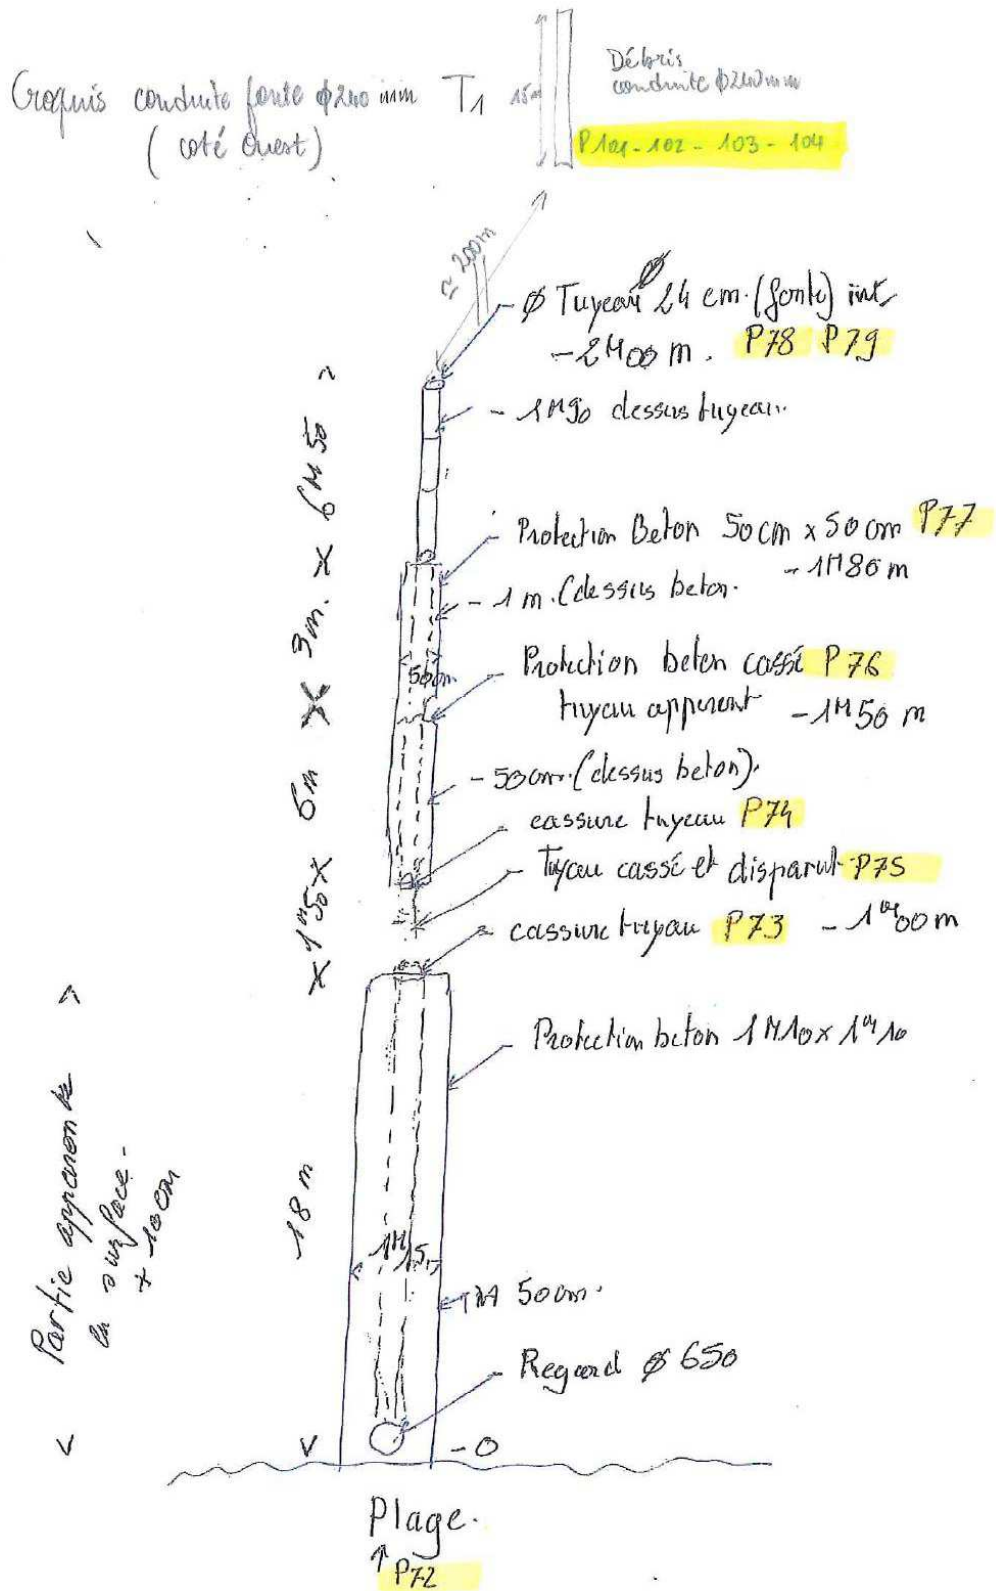 Croquis conduite fonte ϕ240 mm T1
(coté Ouest)
15m
Débris
conduite ϕ240mm
P101-102-103-104
≃ 200m
Ø Tuyeau 24 cm. (fonte) int
- 2M00 m. P78 P79
- 1M90 dessus tuyeau.
6M50
Protection Beton 50cm x 50cm P77
- 1M80 m
- 1 m. (dessus beton.
3m.
50cm
Protection beton cassé P76
tuyau apparent - 1M50 m
6m
- 50cm. (dessus beton).
cassure tuyeau P74
Tuyau cassé et disparut P75
1M50
cassure tuyau P73 - 1M00 m
Protection beton 1M10 x 1M10
Partie apparente
en surface -
+ 10cm
18m
1M15
50cm.
Regard Ø 650
- 0
Plage.
P72